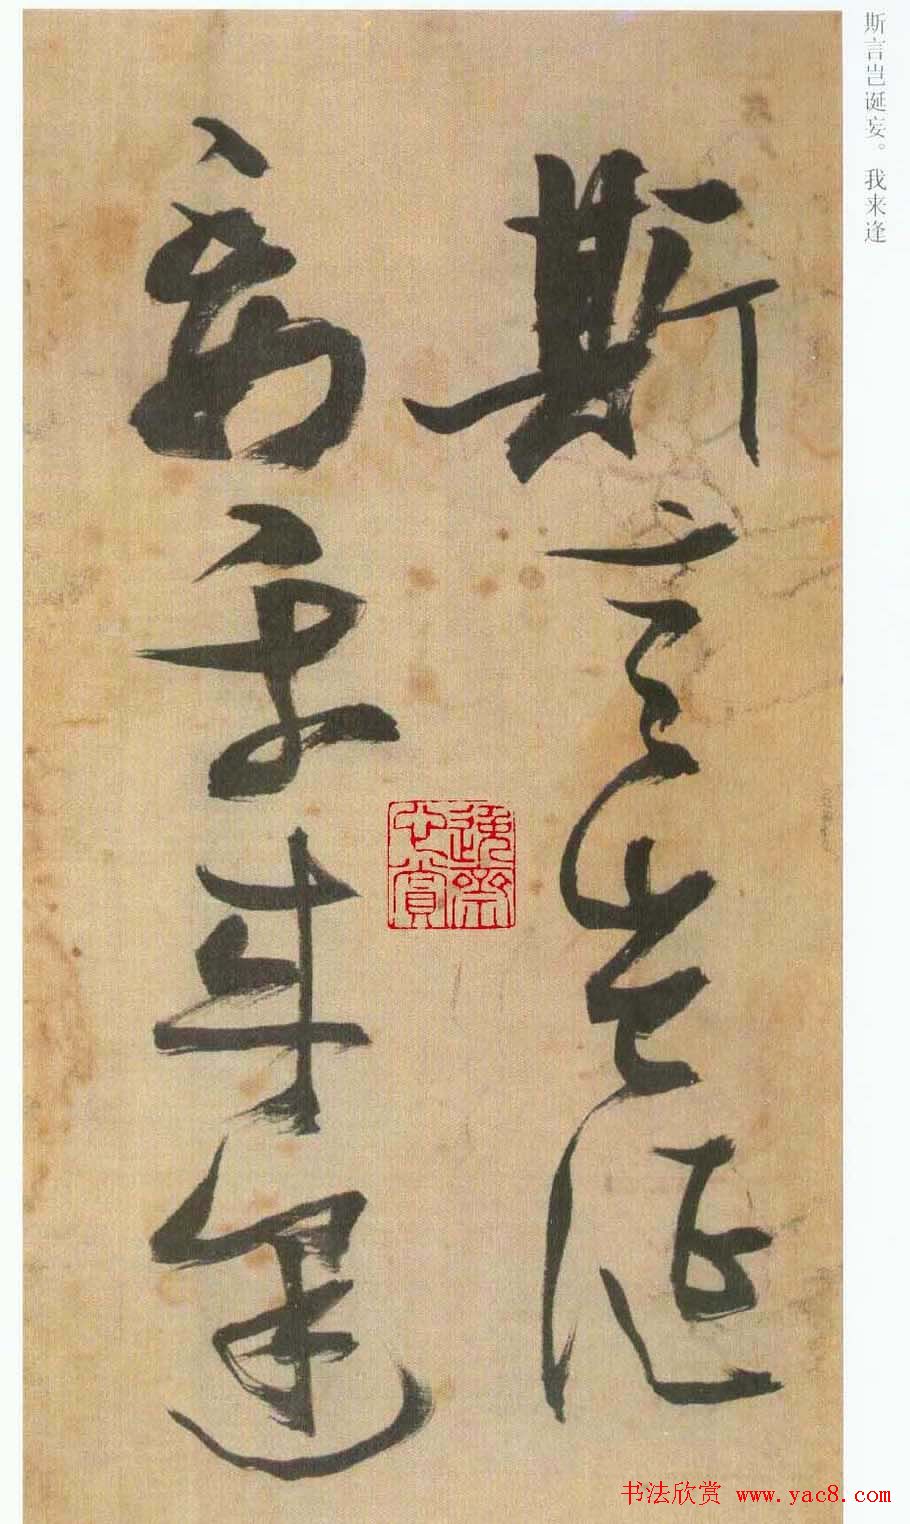 斯言岂诞妄。我来逢
斯言豈誕
妄我來逢
书法欣赏 www.yac8.com